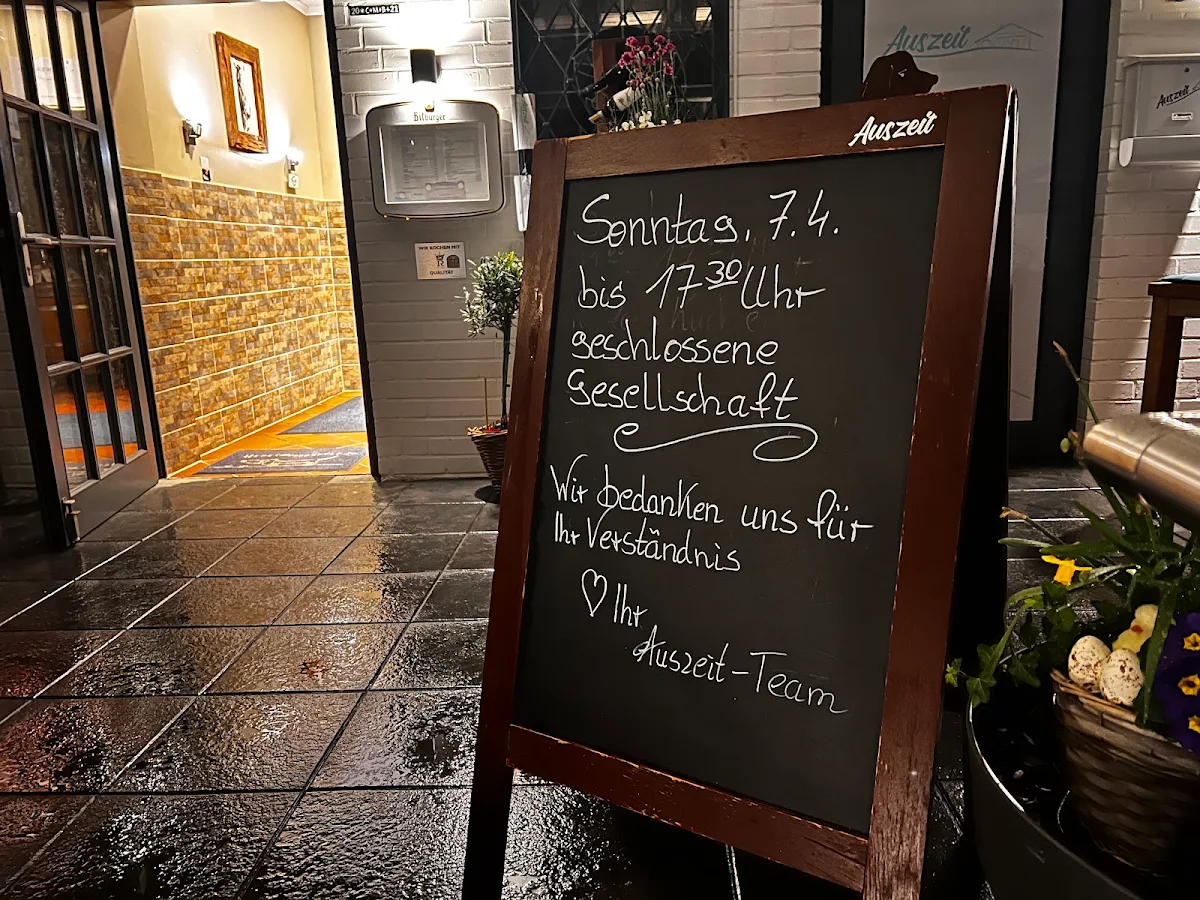 20*C+M+B+21
Bitburger
WIR KOCHEN MIT
QUALITÄT
Auszeit
Auszeit
Auszeit
Sonntag, 7.4.
bis 17³⁰ Uhr
geschlossene
Gesellschaft
Wir bedanken uns für
Ihr Verständnis
♡ Ihr
Auszeit-Team